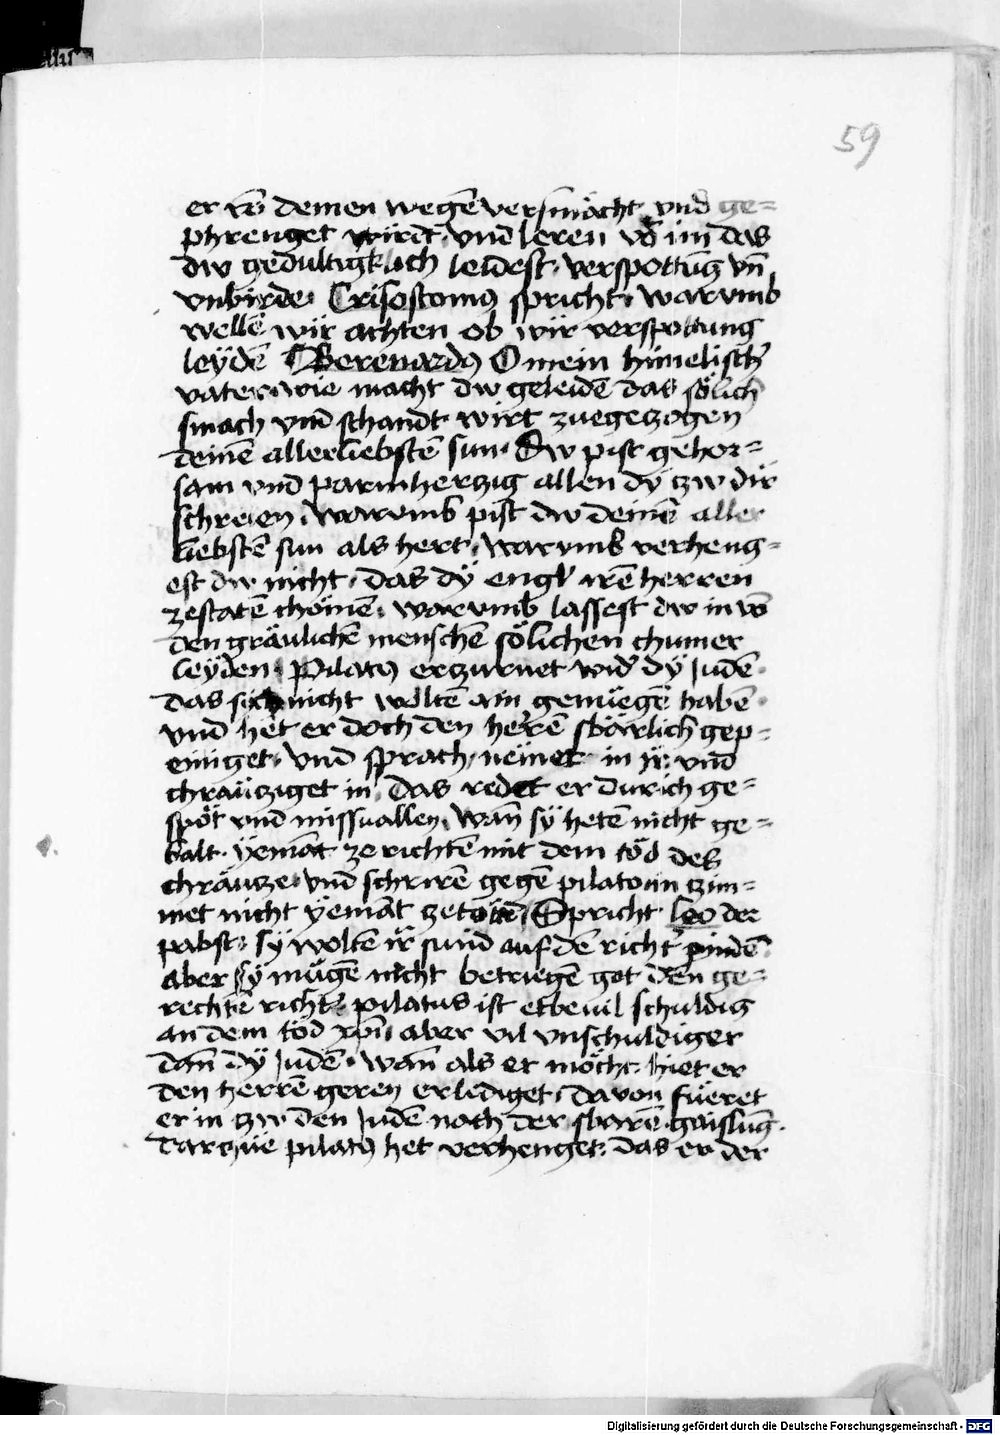 59
er vō deinen wegē versmächt vnd ge=
phrenget wirdt vnd leren vō im das
dw gedultigklich leidest verspottūg vn̄
vnbirde Crisostomꝯ spricht warvmb
wellē wir achten ob wir verspottung
leÿdē Berenardꝯ O mein himelischer
vater wie macht dw geleidē das sölich
smach vnd schandt wirt zuegezogen
deinē allerliebstē sun Dw pist gehor=
sam vnd parmherzig allen dÿ zw dir
schreien warvmb pist dw deinē aller
liebstē sun als hert warvmb verheng=
est dw nicht das dÿ engl irē herren
zestatē chömē warvmb lassest dw in vō
den gräulichē menschē sölichen chumer
leÿden Pilatꝯ erzurnet wid' dÿ Judē
das sich nicht woltē ain genüegē haben
vnd hiet er doch den herrē swärlich gep=
einiget vnd sprach neimet in ir vnd
chräuziget in Das redet er durich ge=
spöt vnd missuallen wan̄ sÿ hetē nicht ge=
balt ÿemāt ze richtē mit dem töd des
chräuze vnd schrirē gegē pilato im zim=
met nicht ÿemāt zetöten Spricht Leo der
pabst sÿ woltē ir sund auf dē richt' pindē
aber sÿ mügē nicht betriegē got den ge=
rechtē richt' pilatus ist etbeuil schuldig
an dem töd xp̄i aber vil vnschuldiger
dan̄ dÿ Judē wan̄ als er möcht hiet er
den herrē geren erlediget davon füeret
er in zw den Judē noch der swärē gaislūg
darzue pilatꝯ het verhenget das er der
Digitalisierung gefördert durch die Deutsche Forschungsgemeinschaft - DFG